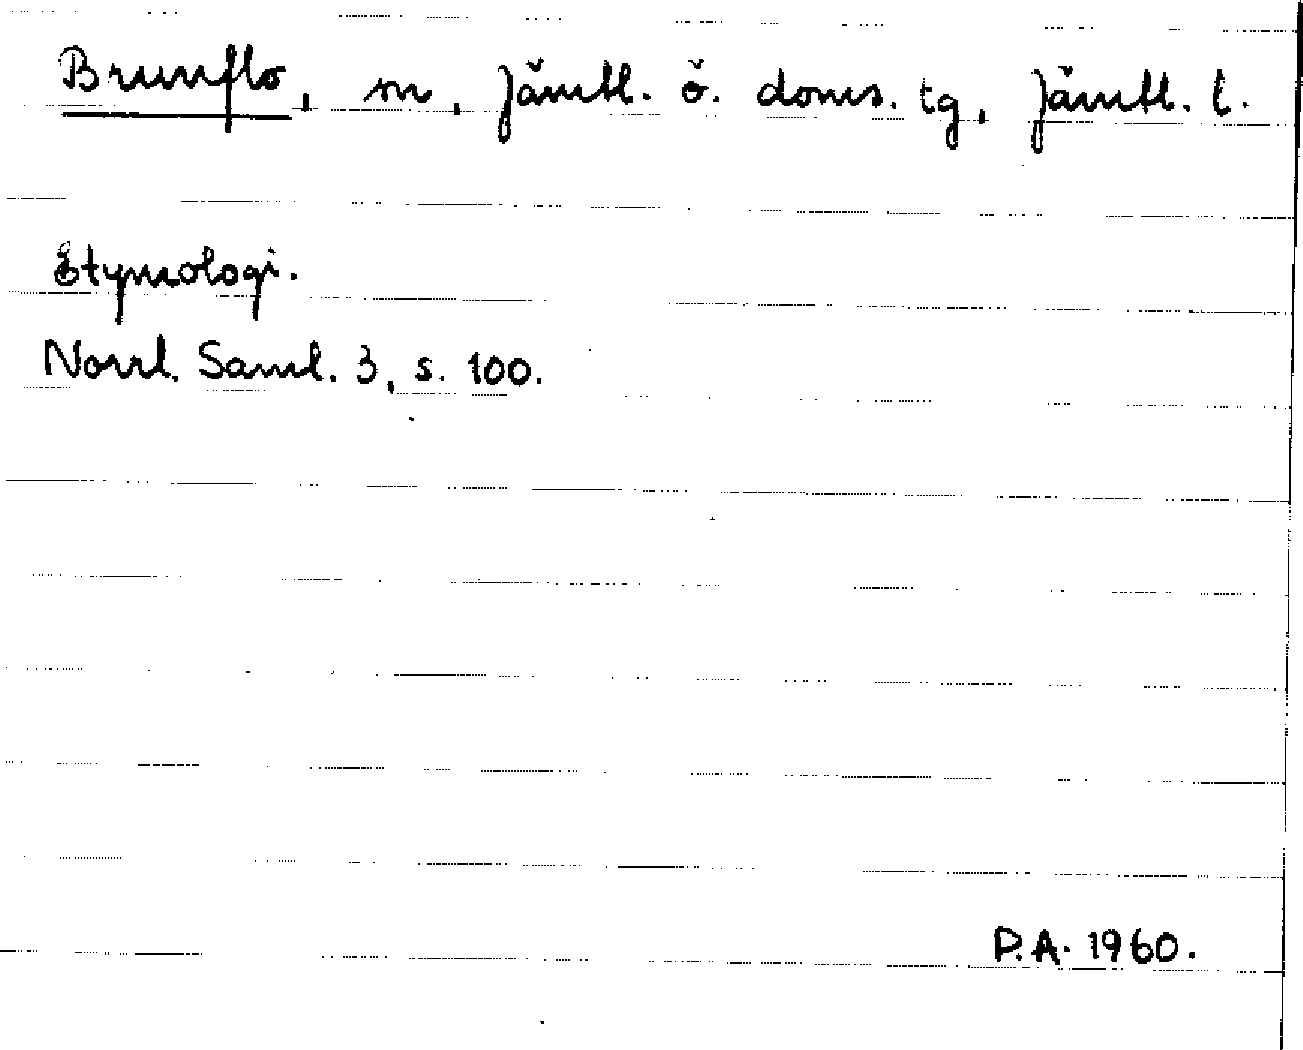 Brunflo, sn, Jämtl. ö. doms. tg, Jämtl. l.
Etymologi.
Norrl. Saml. 3, s. 100.
P.A. 1960.